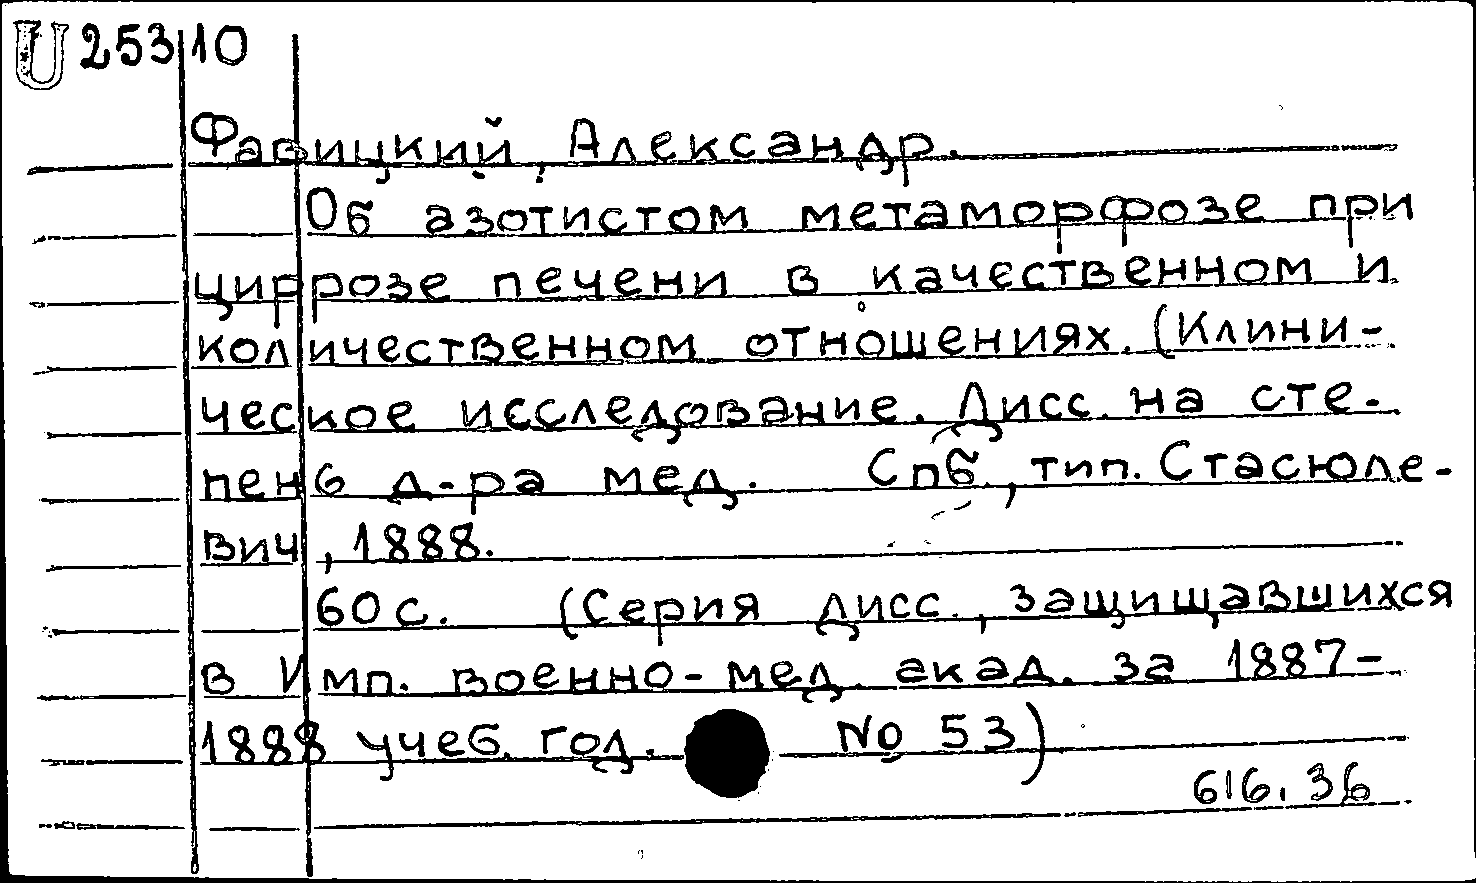 U 253 10
Фавицкий, Александр.
Об азотистом метаморфозе при
циррозе печени в качественном и
количественном отношениях. (Клини-
ческое исследование. Дисс. на сте-
пень д-ра мед. Спб, тип. Стасюле-
вич, 1888.
60 с. (Серия дисс., защищавшихся
в Имп. военно-мед. акад. за 1887-
1888 учеб. год. No 53)
616.36